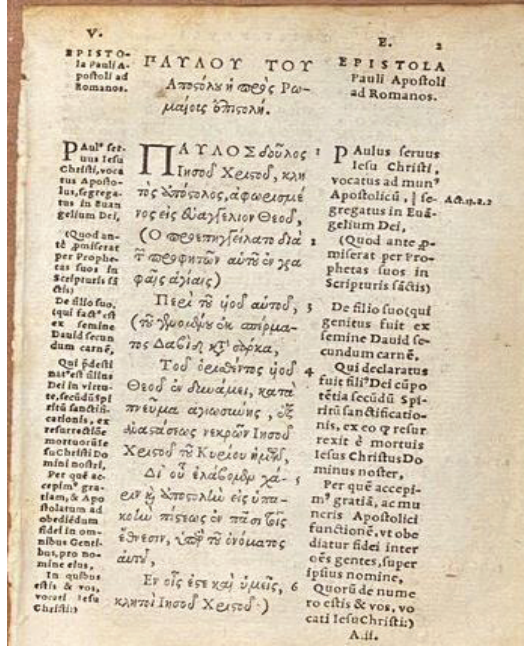 V.
EPISTO-
la Pauli A-
postoli ad
Romanos.
PAulꝰ ser-
uus Iesu
Christi, voca
tus Aposto-
lus, segrega-
tus in Euan
gelium Dei,
(Quod an-
tè ꝓmiserat
per Prophe-
tas suos in
Scripturis sã
ctis)
De filio suo,
(qui factꝰ est
ex semine
Dauid secun
dum carnẽ,
Qui p̃desti
natꝰ est filius
Dei in virtu-
te, secũdũ spi
ritũ sanctifi-
cationis, ex
resurrectiõe
mortuorũ Ie
su Christi Do
mini nostri,
Per quẽ ac-
cepimꝰ gra-
tiam, & Apo
stolatum ad
obediẽdum
fidei in om-
nibus Genti-
bus, pro no-
mine eius,
In quibus
estis & vos,
vocati Iesu
Christi:)
ΠΑΥΛΟΥ ΤΟΥ
Αποστόλου ἡ πρὸς Ρω-
μαίοις ἐπιστολή.
ΠΑΥΛΟΣ δοῦλος 1
Ιησοῦ Χριστοῦ, κλη
τὸς ἀπόστολος, ἀφωρισμέ
νος εἰς εὐαγγέλιον Θεοῦ,
(Ο προεπηγγείλατο διὰ 2
τῶν προφητῶν αὐτοῦ ἐν γρα
φαῖς ἁγίαις)
Περὶ τοῦ υἱοῦ αὐτοῦ, 3
(τοῦ γενομένου ἐκ σπέρμα-
τος Δαβὶδ κατὰ σάρκα,
Τοῦ ὁρισθέντος υἱοῦ 4
Θεοῦ ἐν δυνάμει, κατὰ
πνεῦμα ἁγιωσύνης, ἐξ
ἀναστάσεως νεκρῶν Ιησοῦ
Χριστοῦ τοῦ Κυρίου ἡμῶν,
Δι' οὗ ἐλάβομεν χά- 5
ριν καὶ ἀποστολὴν εἰς ὑπα-
κοὴν πίστεως ἐν πᾶσι τοῖς
ἔθνεσιν, ὑπὲρ τοῦ ὀνόματος
αὐτοῦ,
Εν οἷς ἐστε καὶ ὑμεῖς, 6
κλητοὶ Ιησοῦ Χριστοῦ·)
E. 2
EPISTOLA
Pauli Apostoli
ad Romanos.
PAulus seruus
Iesu Christi,
vocatus ad munꝰ
Apostolicũ, ‖ se-
gregatus in Euã-
gelium Dei,
(Quod ante ꝓ-
miserat per Pro-
phetas suos in
Scripturis sãctis)
De filio suo (qui
genitus fuit ex
semine Dauid se-
cundum carnẽ,
Qui declaratus
fuit filiꝰ Dei cũ po
tẽtia secũdũ Spi-
ritũ sanctificatio-
nis, ex eo ꝙ resur
rexit è mortuis
Iesus Christus Do
minus noster,
Per quẽ accepi-
mꝰ gratiã, ac mu
neris Apostolici
functionẽ, vt obe
diatur fidei inter
oẽs gentes, super
ipsius nomine,
Quorũ de nume
ro estis & vos, vo
cati Iesu Christi:)
Act. 13. 2. 2
A.ii.